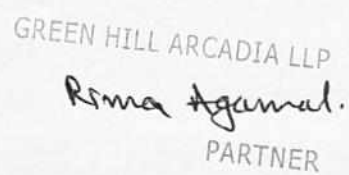 GREEN HILL ARCADIA LLP
Rima Agarwal.
PARTNER